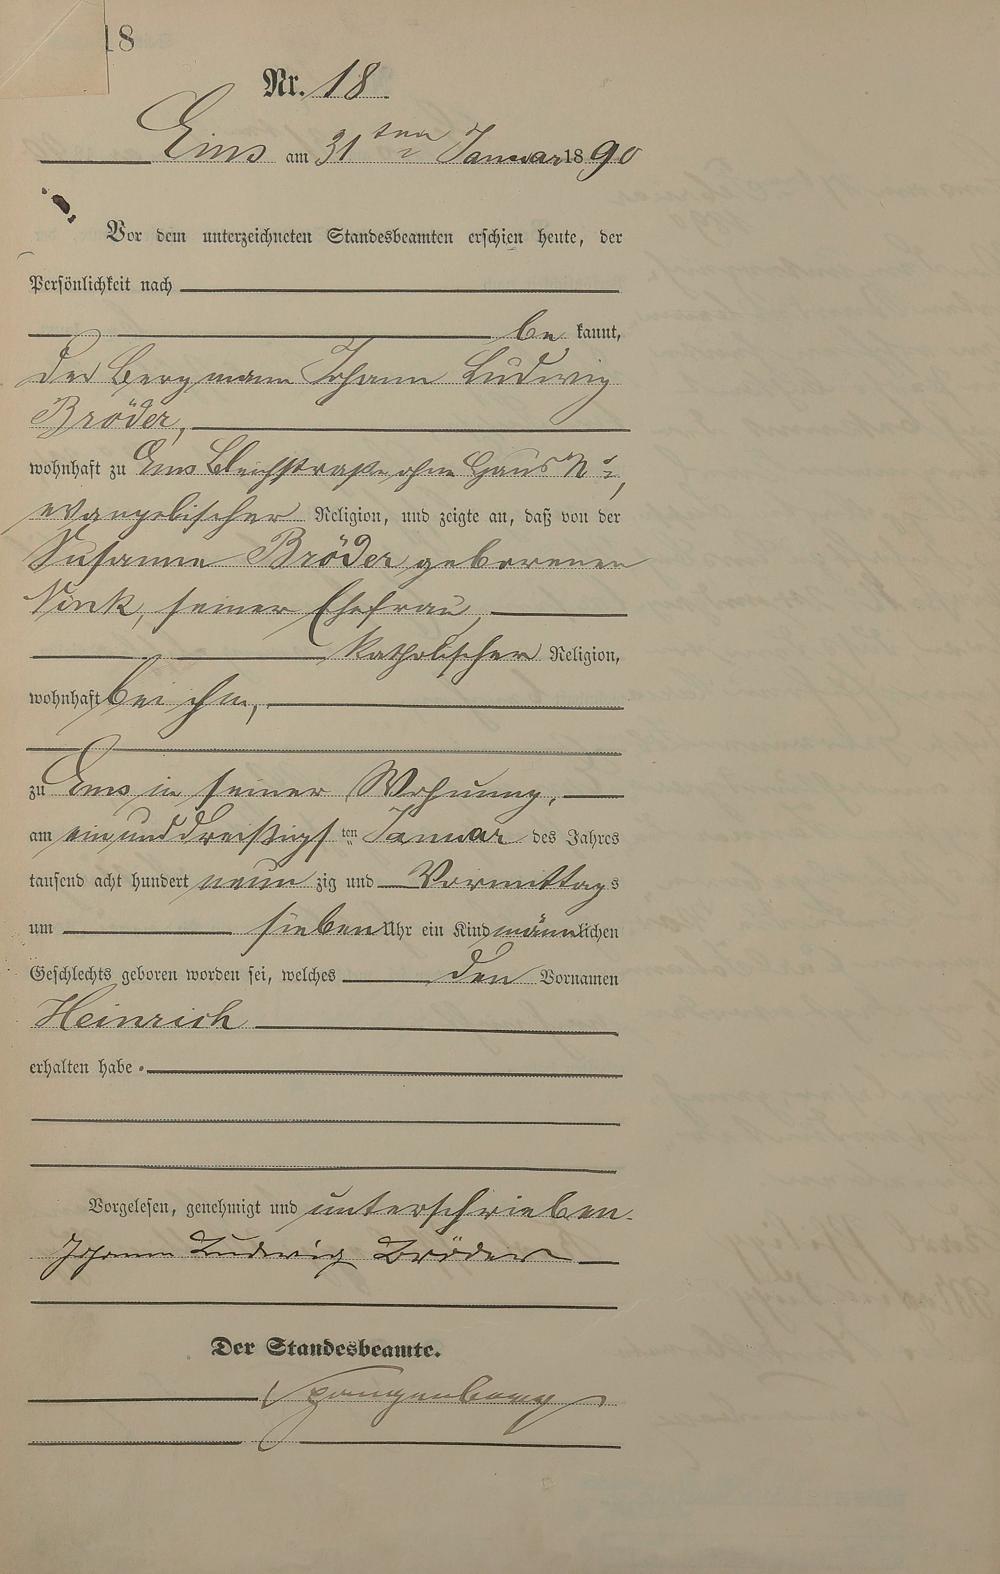 18
Nr. 18.
Ems am 31 ten Januar 1890
Vor dem unterzeichneten Standesbeamten erschien heute, der
Persönlichkeit nach
be kannt,
der Bergmann Johann Ludwig
Bröder,
wohnhaft zu Ems Bleichstraße ohne Haus No,
evangelischer Religion, und zeigte an, daß von der
Susanna Bröder geborenen
Nink, seiner Ehefrau,
katholischer Religion,
wohnhaft bei ihm,
zu Ems in seiner Wohnung,
am ein und dreißigsten Januar des Jahres
tausend acht hundert neun zig und Vormittags
um sieben Uhr ein Kind männlichen
Geschlechts geboren worden sei, welches den Vornamen
Heinrich
erhalten habe.
Vorgelesen, genehmigt und unterschrieben.
Johann Ludwig Bröder
Der Standesbeamte.
Spangenberg